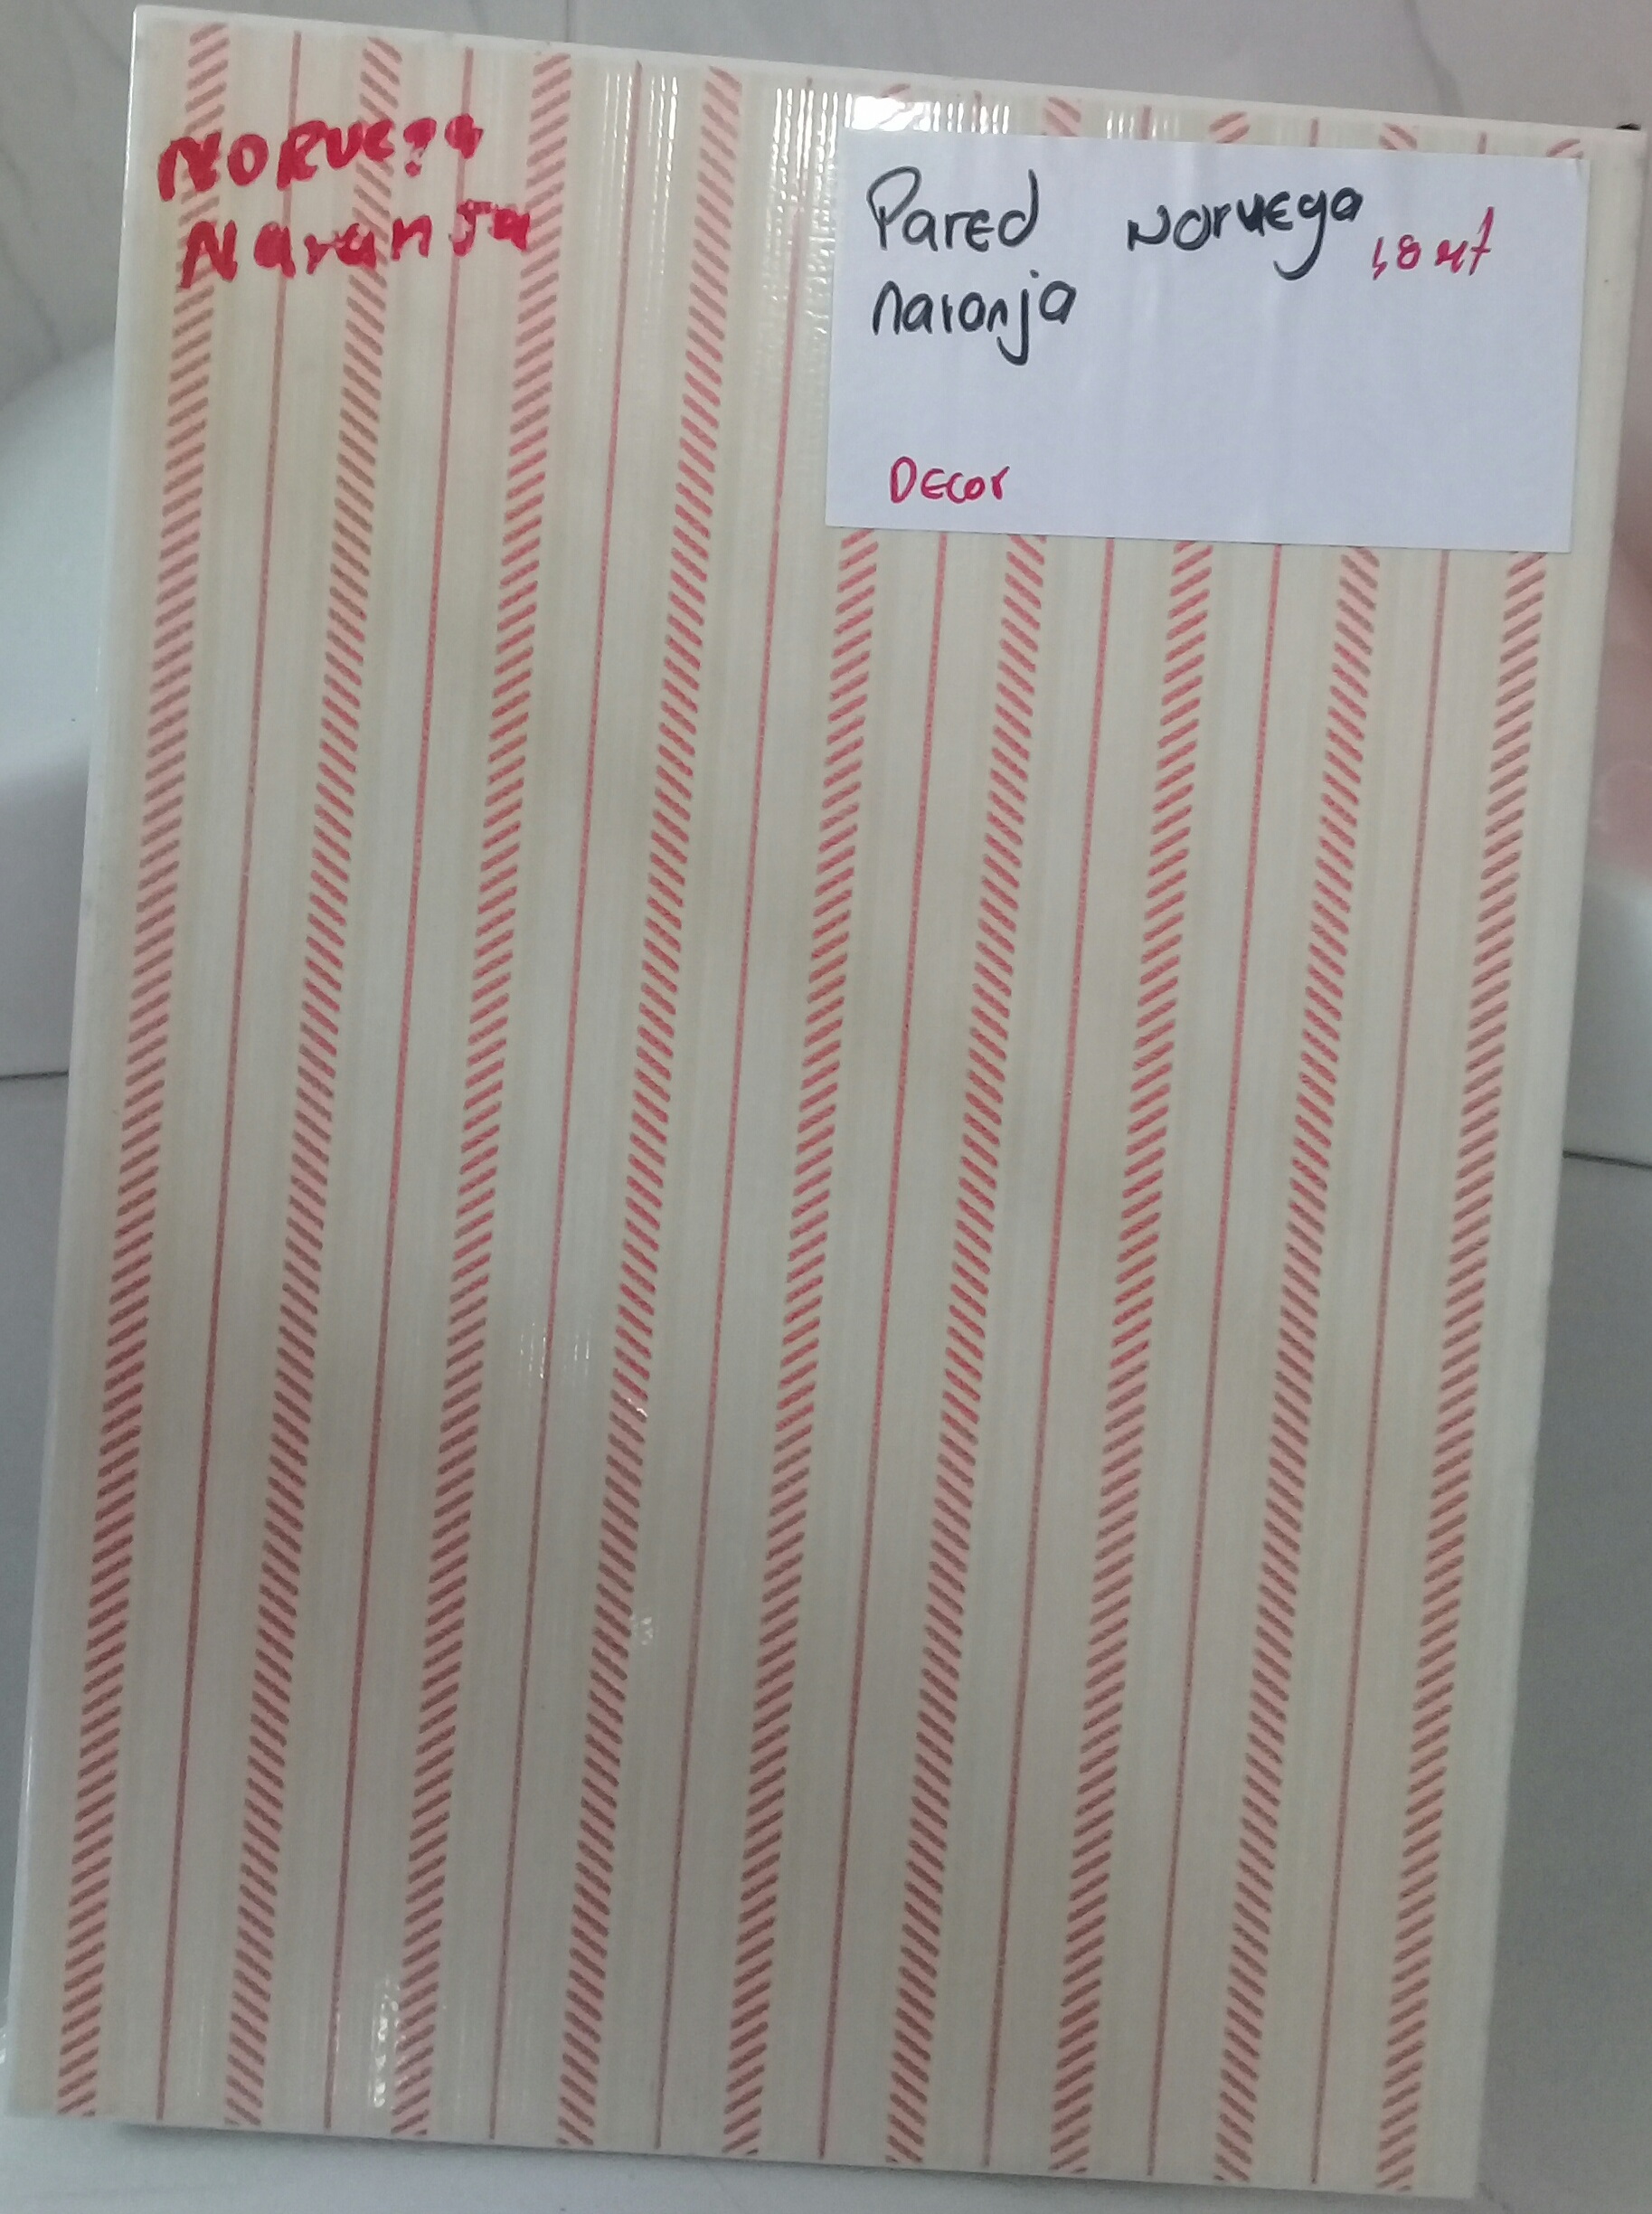 NORUEGA
Naranja
Pared Noruega
naranja
Decor